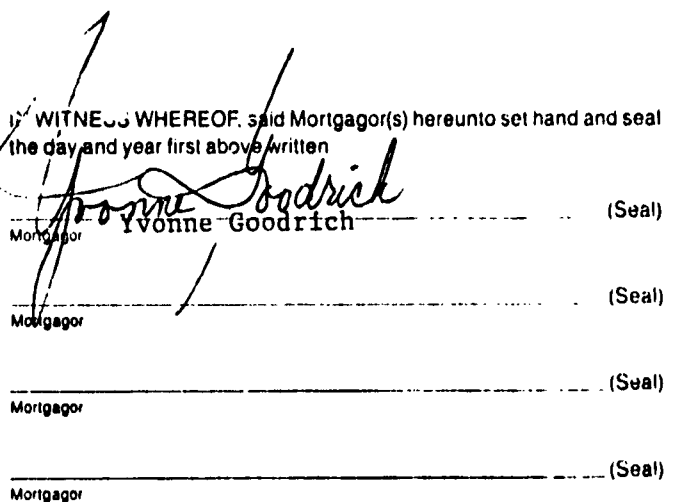 IN WITNESS WHEREOF, said Mortgagor(s) hereunto set hand and seal
the day and year first above written
Yvonne Goodrich (Seal)
Yvonne Goodrich
Mortgagor
(Seal)
Mortgagor
(Seal)
Mortgagor
(Seal)
Mortgagor